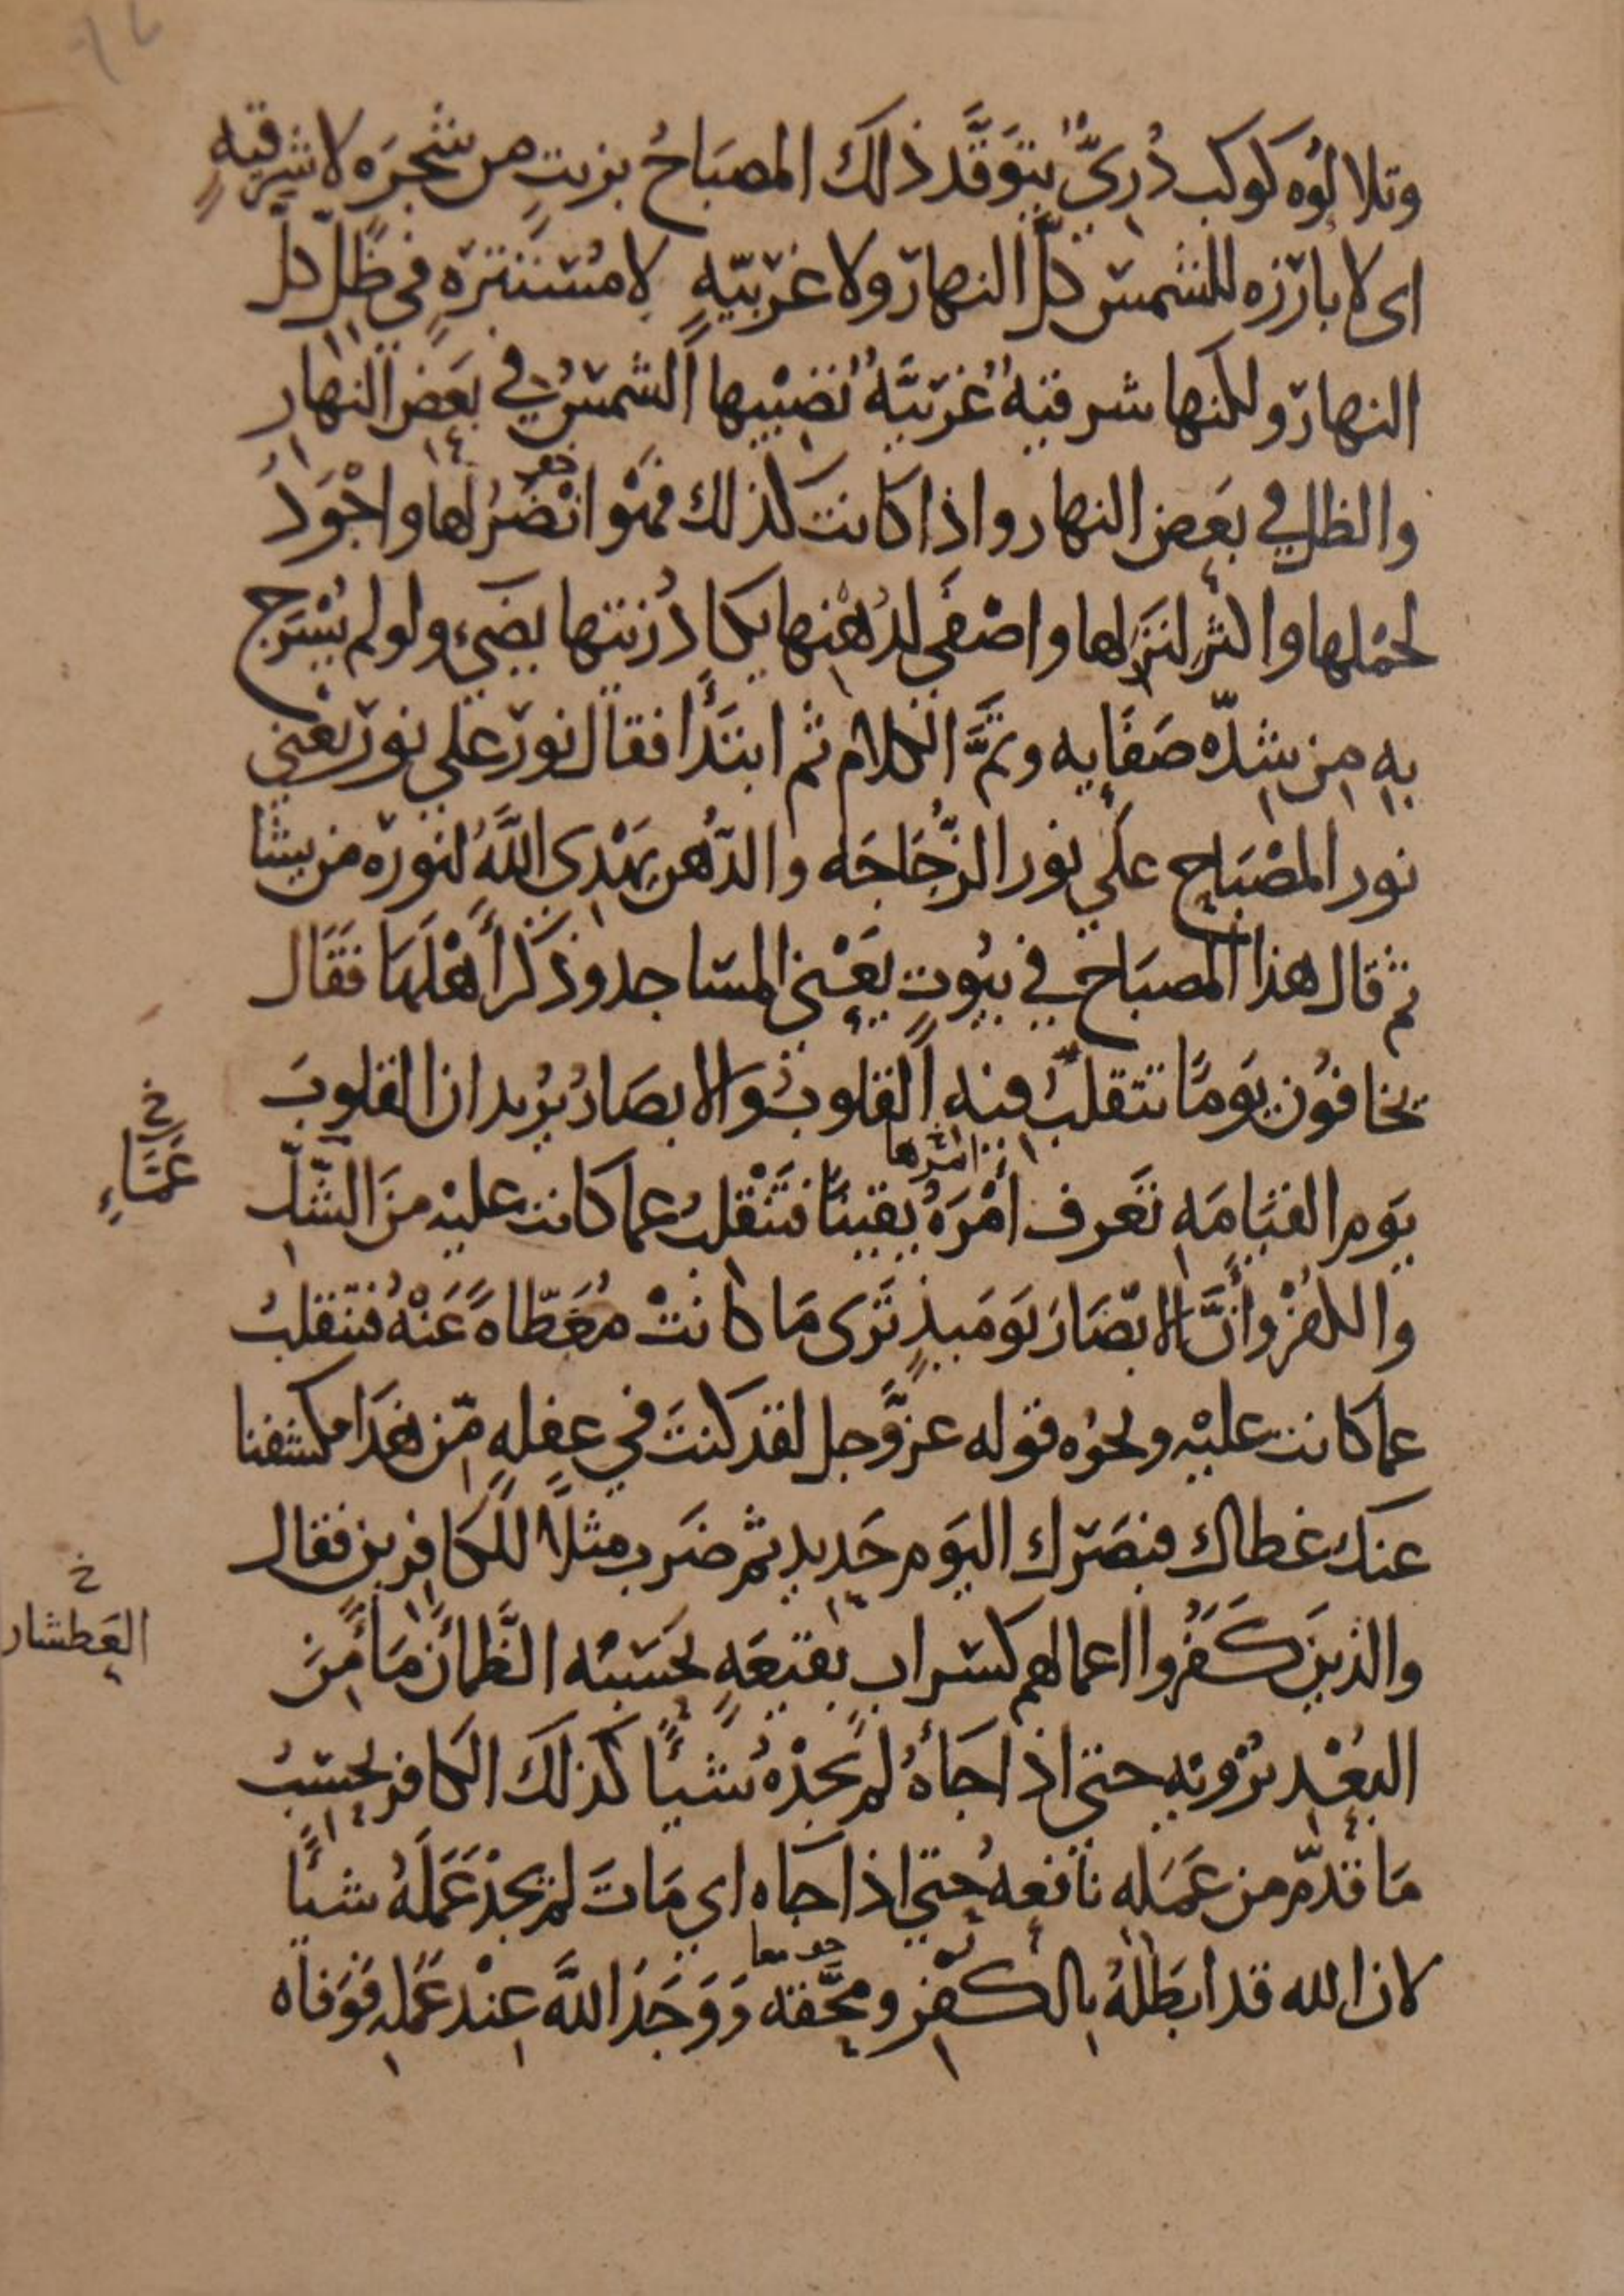 وتلالوه كوكب دُريٌّ يتوَقَّد ذلك المصبَاحُ بزيتٍ من شجرَه لا شرقيهٍ
اى لا بارزه للشمس كلَّ النهار ولا غربيّهٍ لا مُستترهٍ في ظلٍّ كلَّ
النهار ولكنها شرقيهٌ غربيَّهٌ تُصيبها الشمسُ في بَعض النهار
والظل في بعض النهار واذا كانت كذلك فهو انضرُ لها واجْوَدُ
لحملها واكثر لنزلها واصْفَى لدُهنها يكادُ زيتها يضىء ولو لم يُسْرَج
به من شدّه صَفَايه وتمَّ الكلام ثم ابتدَأ فقال نور على نور يعني
نور المصْبَاح على نور الزُّجَاجَه والدُّهن يَهْدي اللَّهُ لنوره من يشا
ثم قال هذا المصبَاح في بيُوتٍ يَعْني المسَاجد وذكَر أهْلَهَا فَقَال
يخافوُن يَومًا تتقلبُ فيه القلوبُ والابصَارُ يُريد ان القلوبَ
امرها
يَوم القيَامَهِ تَعَرف أمْرَهُ يَقينًا فتَنْقلبُ عما كانت عليْه منَ الشكِّ
خ
عَمَّاءٍ
والكفْر وأنَّ الابْصَارَ يَومَيذٍ تَرَى مَا كانتْ مُغَطّاهً عَنْهُ فتنقلبُ
عما كانت عليْه ونحوُه قوله عزَّوجل لقد كنتَ في غفلهٍ مّن هَذَا فكشفنا
عنك غطاك فبصَرك اليَوم حَديد ثم ضَرب مثلًا للكافرين فقال
والذين كَفَرُوا اعمالهم كسَراب بقيعَهٍ يحسَبه الظَّمْانُ مَاً منَ
خ
العَطشان
البُعْد يُرْويه حتى اذا جَاهُ لم يجدْهُ شيًا كذلك الكافر يحسبُ
مَا قدّم من عَمَله نافعهُ حتى اذا جاه اى مَاتَ لم يجدْ عَمَلهُ شيًا
لان الله قد ابطَلهُ بالكفْرِ ومحَقه وَوَجَدَ اللَّهَ عنْد عَمَله فَوَفاه